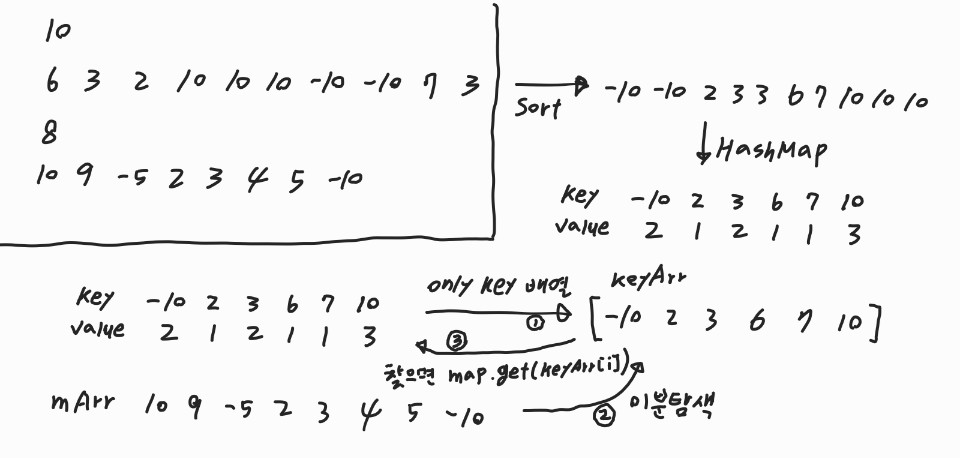 10
6 3 2 10 10 10 -10 -10 7 3
8
10 9 -5 2 3 4 5 -10
Sort
-10 -10 2 3 3 6 7 10 10 10
HashMap
key -10 2 3 6 7 10
value 2 1 2 1 1 3
key -10 2 3 6 7 10
value 2 1 2 1 1 3
only key 배열
①
keyArr
[-10 2 3 6 7 10]
③
찾으면 map.get(keyArr[i])
mArr 10 9 -5 2 3 4 5 -10
② 이분탐색